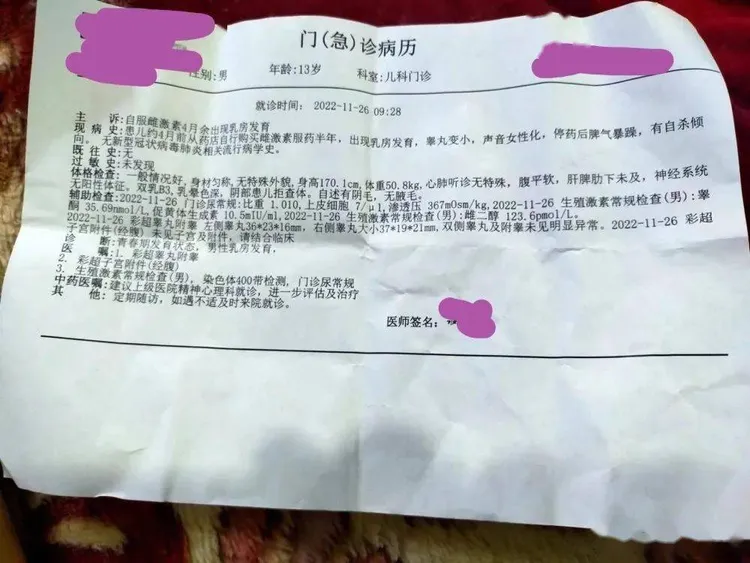 门(急)诊病历
性别:男 年龄:13岁 科室:儿科门诊
就诊时间: 2022-11-26 09:28
主 诉:自服雌激素4月余出现乳房发育
现 病 史:患儿约4月前从药店自行购买雌激素服药半年,出现乳房发育,睾丸变小,声音女性化,停药后脾气暴躁,有自杀倾
向。无新型冠状病毒肺炎相关流行病学史。
既 往 史:无
过 敏 史:未发现
体格检查: 一般情况好,身材匀称,无特殊外貌,身高170.1cm,体重50.8kg,心肺听诊无特殊,腹平软,肝脾肋下未及,神经系统
无阳性体征。双乳B3,乳晕色深,阴部患儿拒查体,自述有阴毛,无腋毛。
辅助检查:2022-11-26 门诊尿常规:比重 1.010,上皮细胞 7/μl,渗透压 367mOsm/kg,2022-11-26 生殖激素常规检查(男):睾
酮 35.69nmol/L,促黄体生成素 10.5IU/ml,2022-11-26 生殖激素常规检查(男):雌二醇 123.6pmol/L。
2022-11-26 彩超睾丸附睾 左侧睾丸36*23*16mm,右侧睾丸大小37*19*21mm,双侧睾丸及附睾未见明显异常。2022-11-26 彩超
子宫附件(经腹) 未见子宫及附件,请结合临床
诊 断:青春期发育状态,男性乳房发育,
医 嘱:1. 彩超睾丸附睾
2. 彩超子宫附件(经腹)
3. 生殖激素常规检查(男),染色体400带检测,门诊尿常规
中药医嘱:建议上级医院精神心理科就诊,进一步评估及治疗
其 他: 定期随访,如遇不适及时来院就诊。
医师签名: